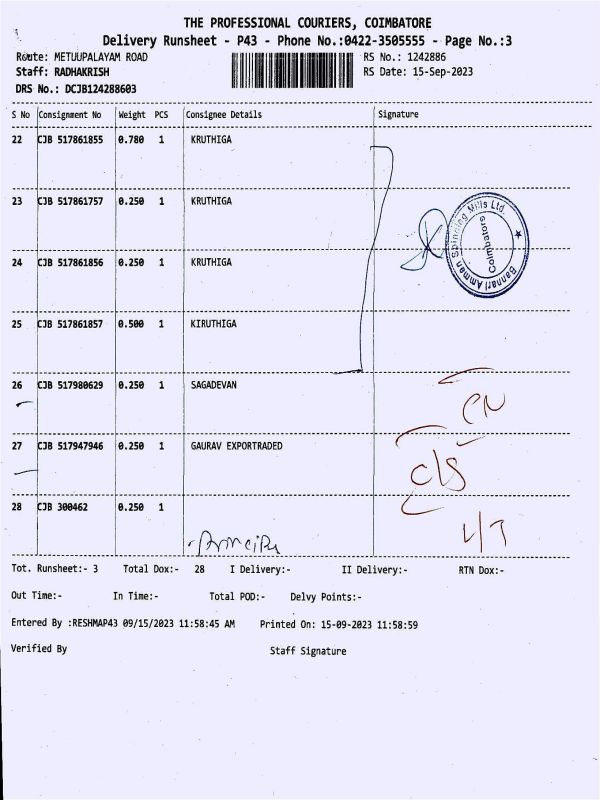 THE PROFESSIONAL COURIERS, COIMBATORE
Delivery Runsheet - P43 - Phone No.:0422-3505555 - Page No.:3
Route: METUUPALAYAM ROAD RS No.: 1242886
Staff: RADHAKRISH RS Date: 15-Sep-2023
DRS No.: DCJB124288603
S No Consignment No Weight PCS Consignee Details Signature
22 CJB 517861855 0.780 1 KRUTHIGA
23 CJB 517861757 0.250 1 KRUTHIGA
Bannari Amman Spinning Mills Ltd.
Coimbatore
24 CJB 517861856 0.250 1 KRUTHIGA
25 CJB 517861857 0.500 1 KIRUTHIGA
26 CJB 517980629 0.250 1 SAGADEVAN
27 CJB 517947946 0.250 1 GAURAV EXPORTRADED
C/S
28 CJB 300462 0.250 1
Tot. Runsheet:- 3 Total Dox:- 28 I Delivery:- II Delivery:- RTN Dox:-
Out Time:- In Time:- Total POD:- Delvy Points:-
Entered By :RESHMAP43 09/15/2023 11:58:45 AM Printed On: 15-09-2023 11:58:59
Verified By Staff Signature